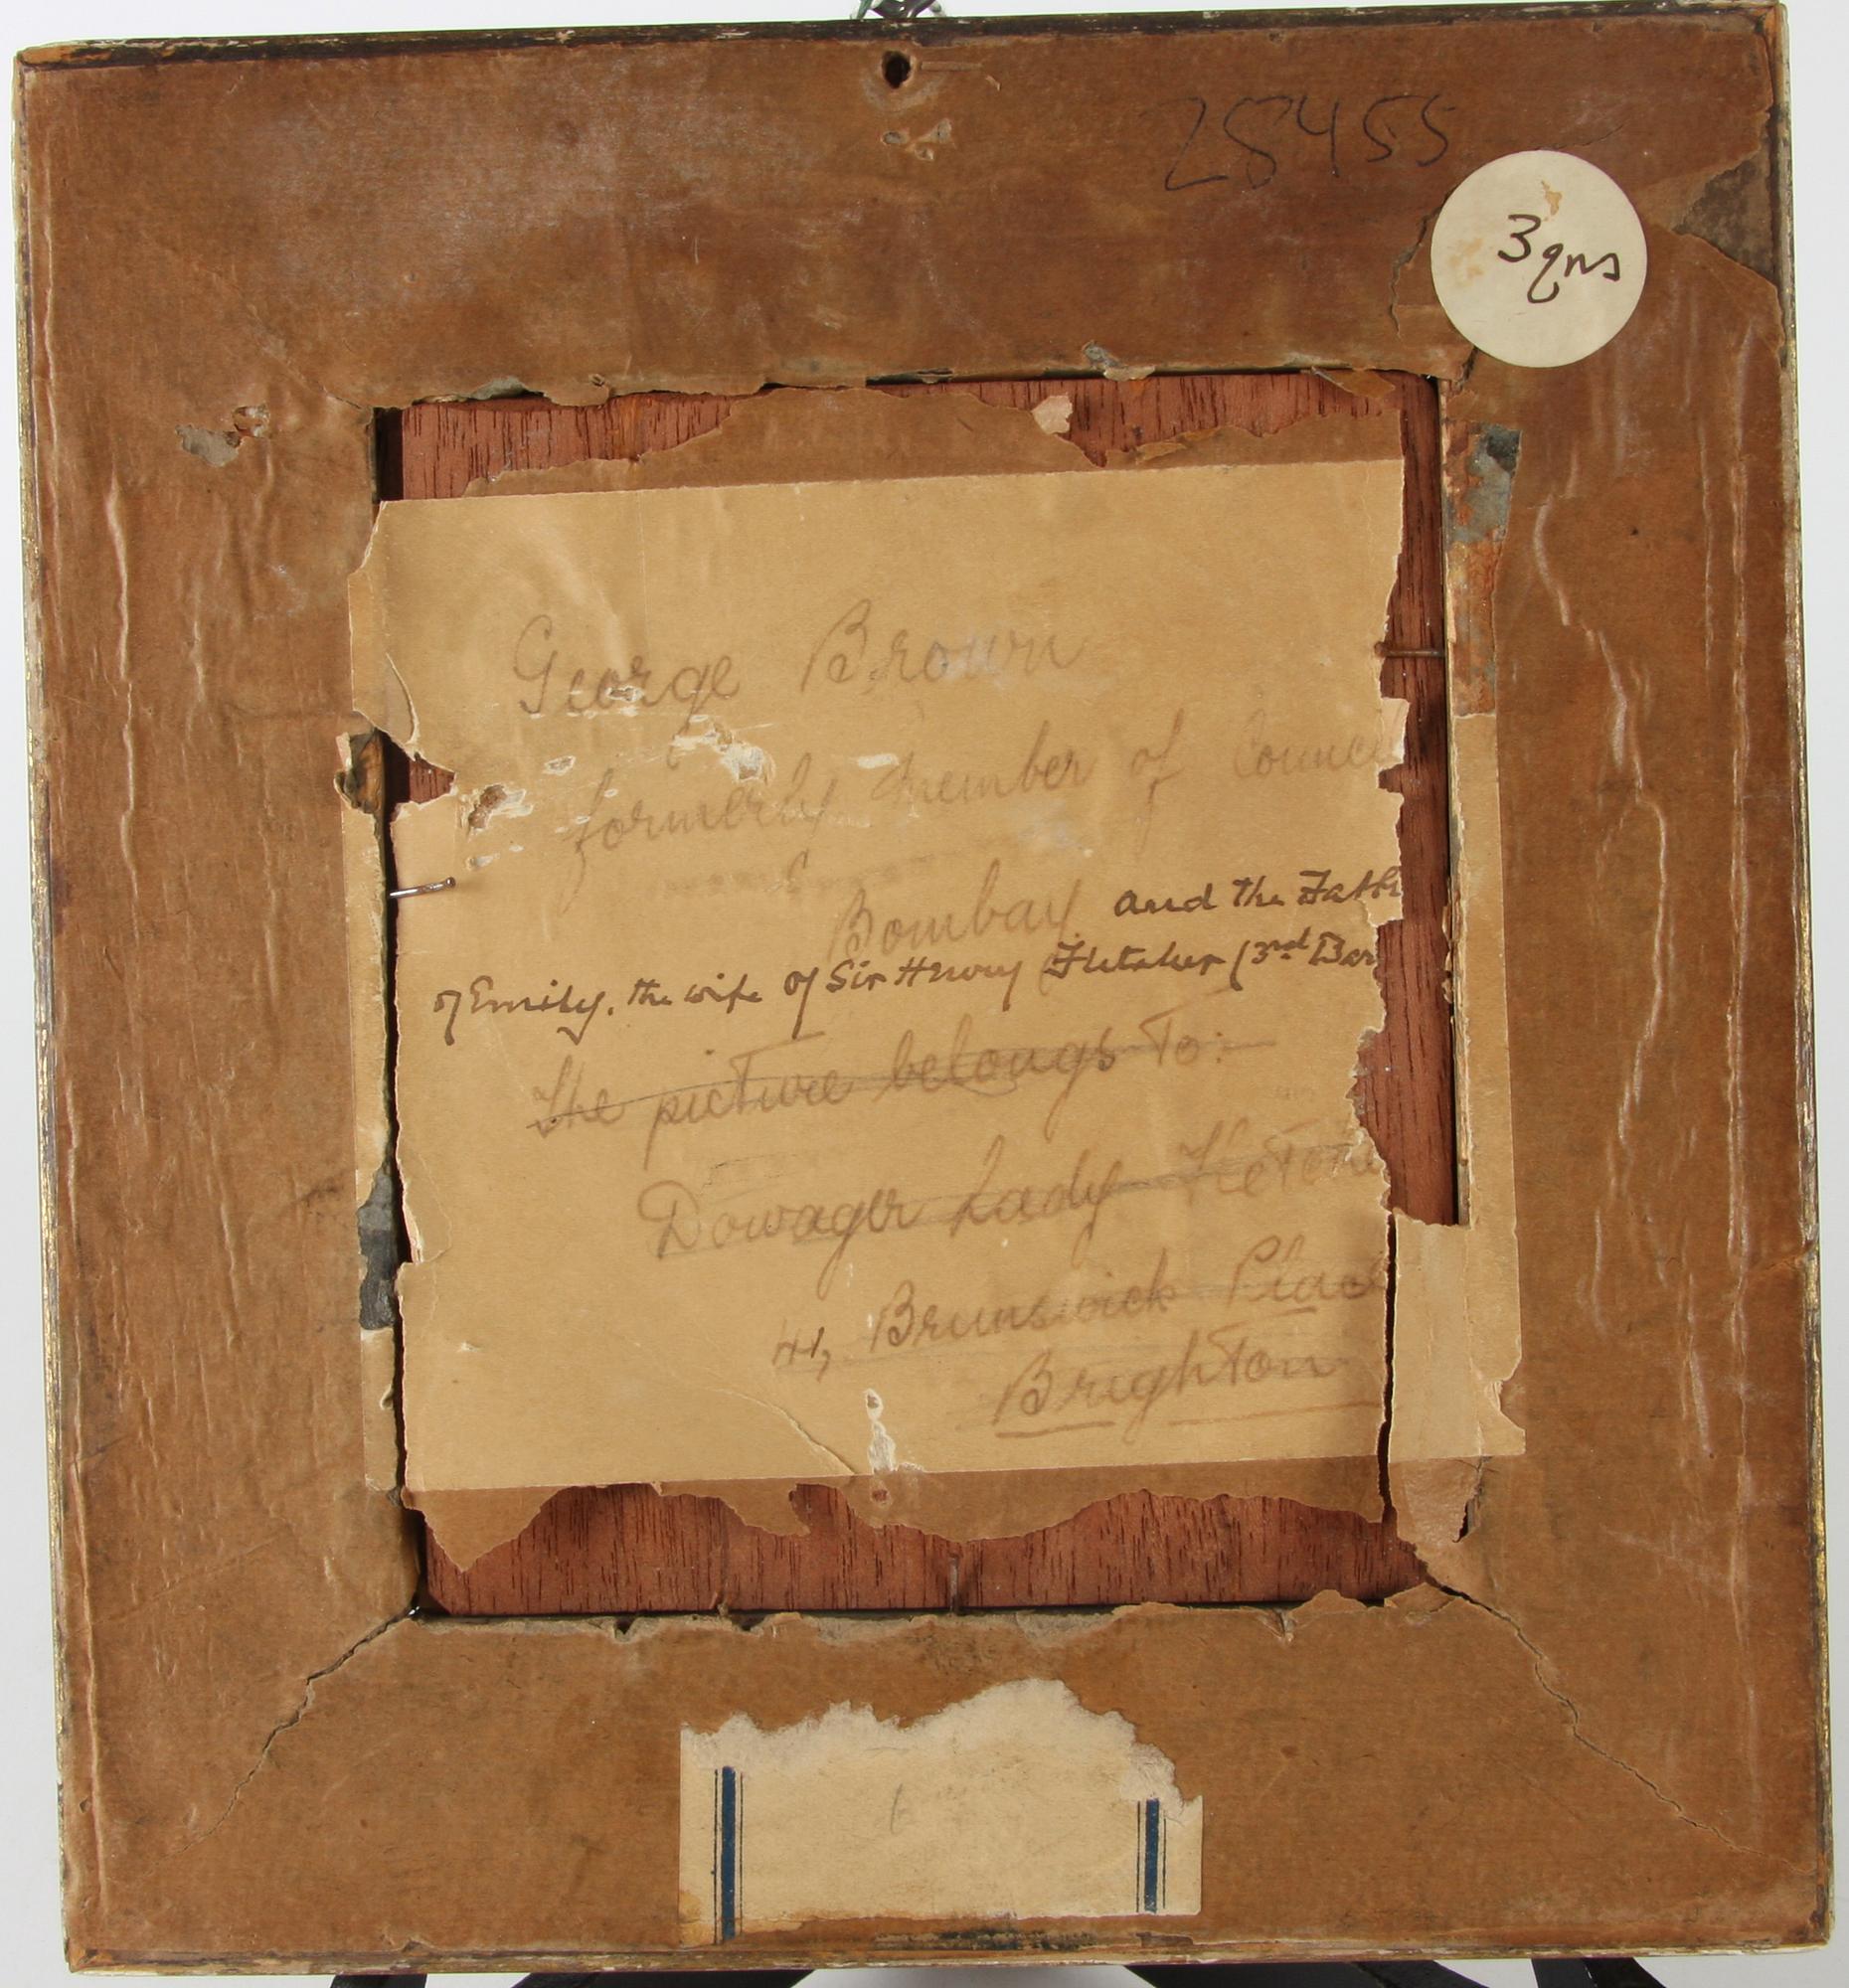 28455
3gns
George Brown
formerly Member of Counci
Bombay and the Fathe
of Emily, the wife of Sir Henry Fletcher (3rd Bar
The picture belongs to:-
Dowager Lady Fletche
41, Brunswick Plac
Brighton